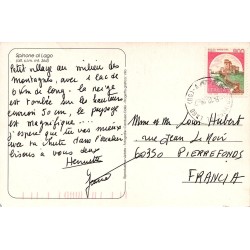 Spinone al Lago
Petit village au milieu des
montagnes, avec 1 lac de
6 km de long. la neige
est tombée sur les hauteurs
environ 50 cm, le paysage
est magnifique...
J'espère que tu vas mieux
avec ta chute dans l'escalier
bisous a vous deux
Henriette
Mme et Mr Louis Hubert
rue Jean Le
60350 PIERREFONDS
FRANCIA